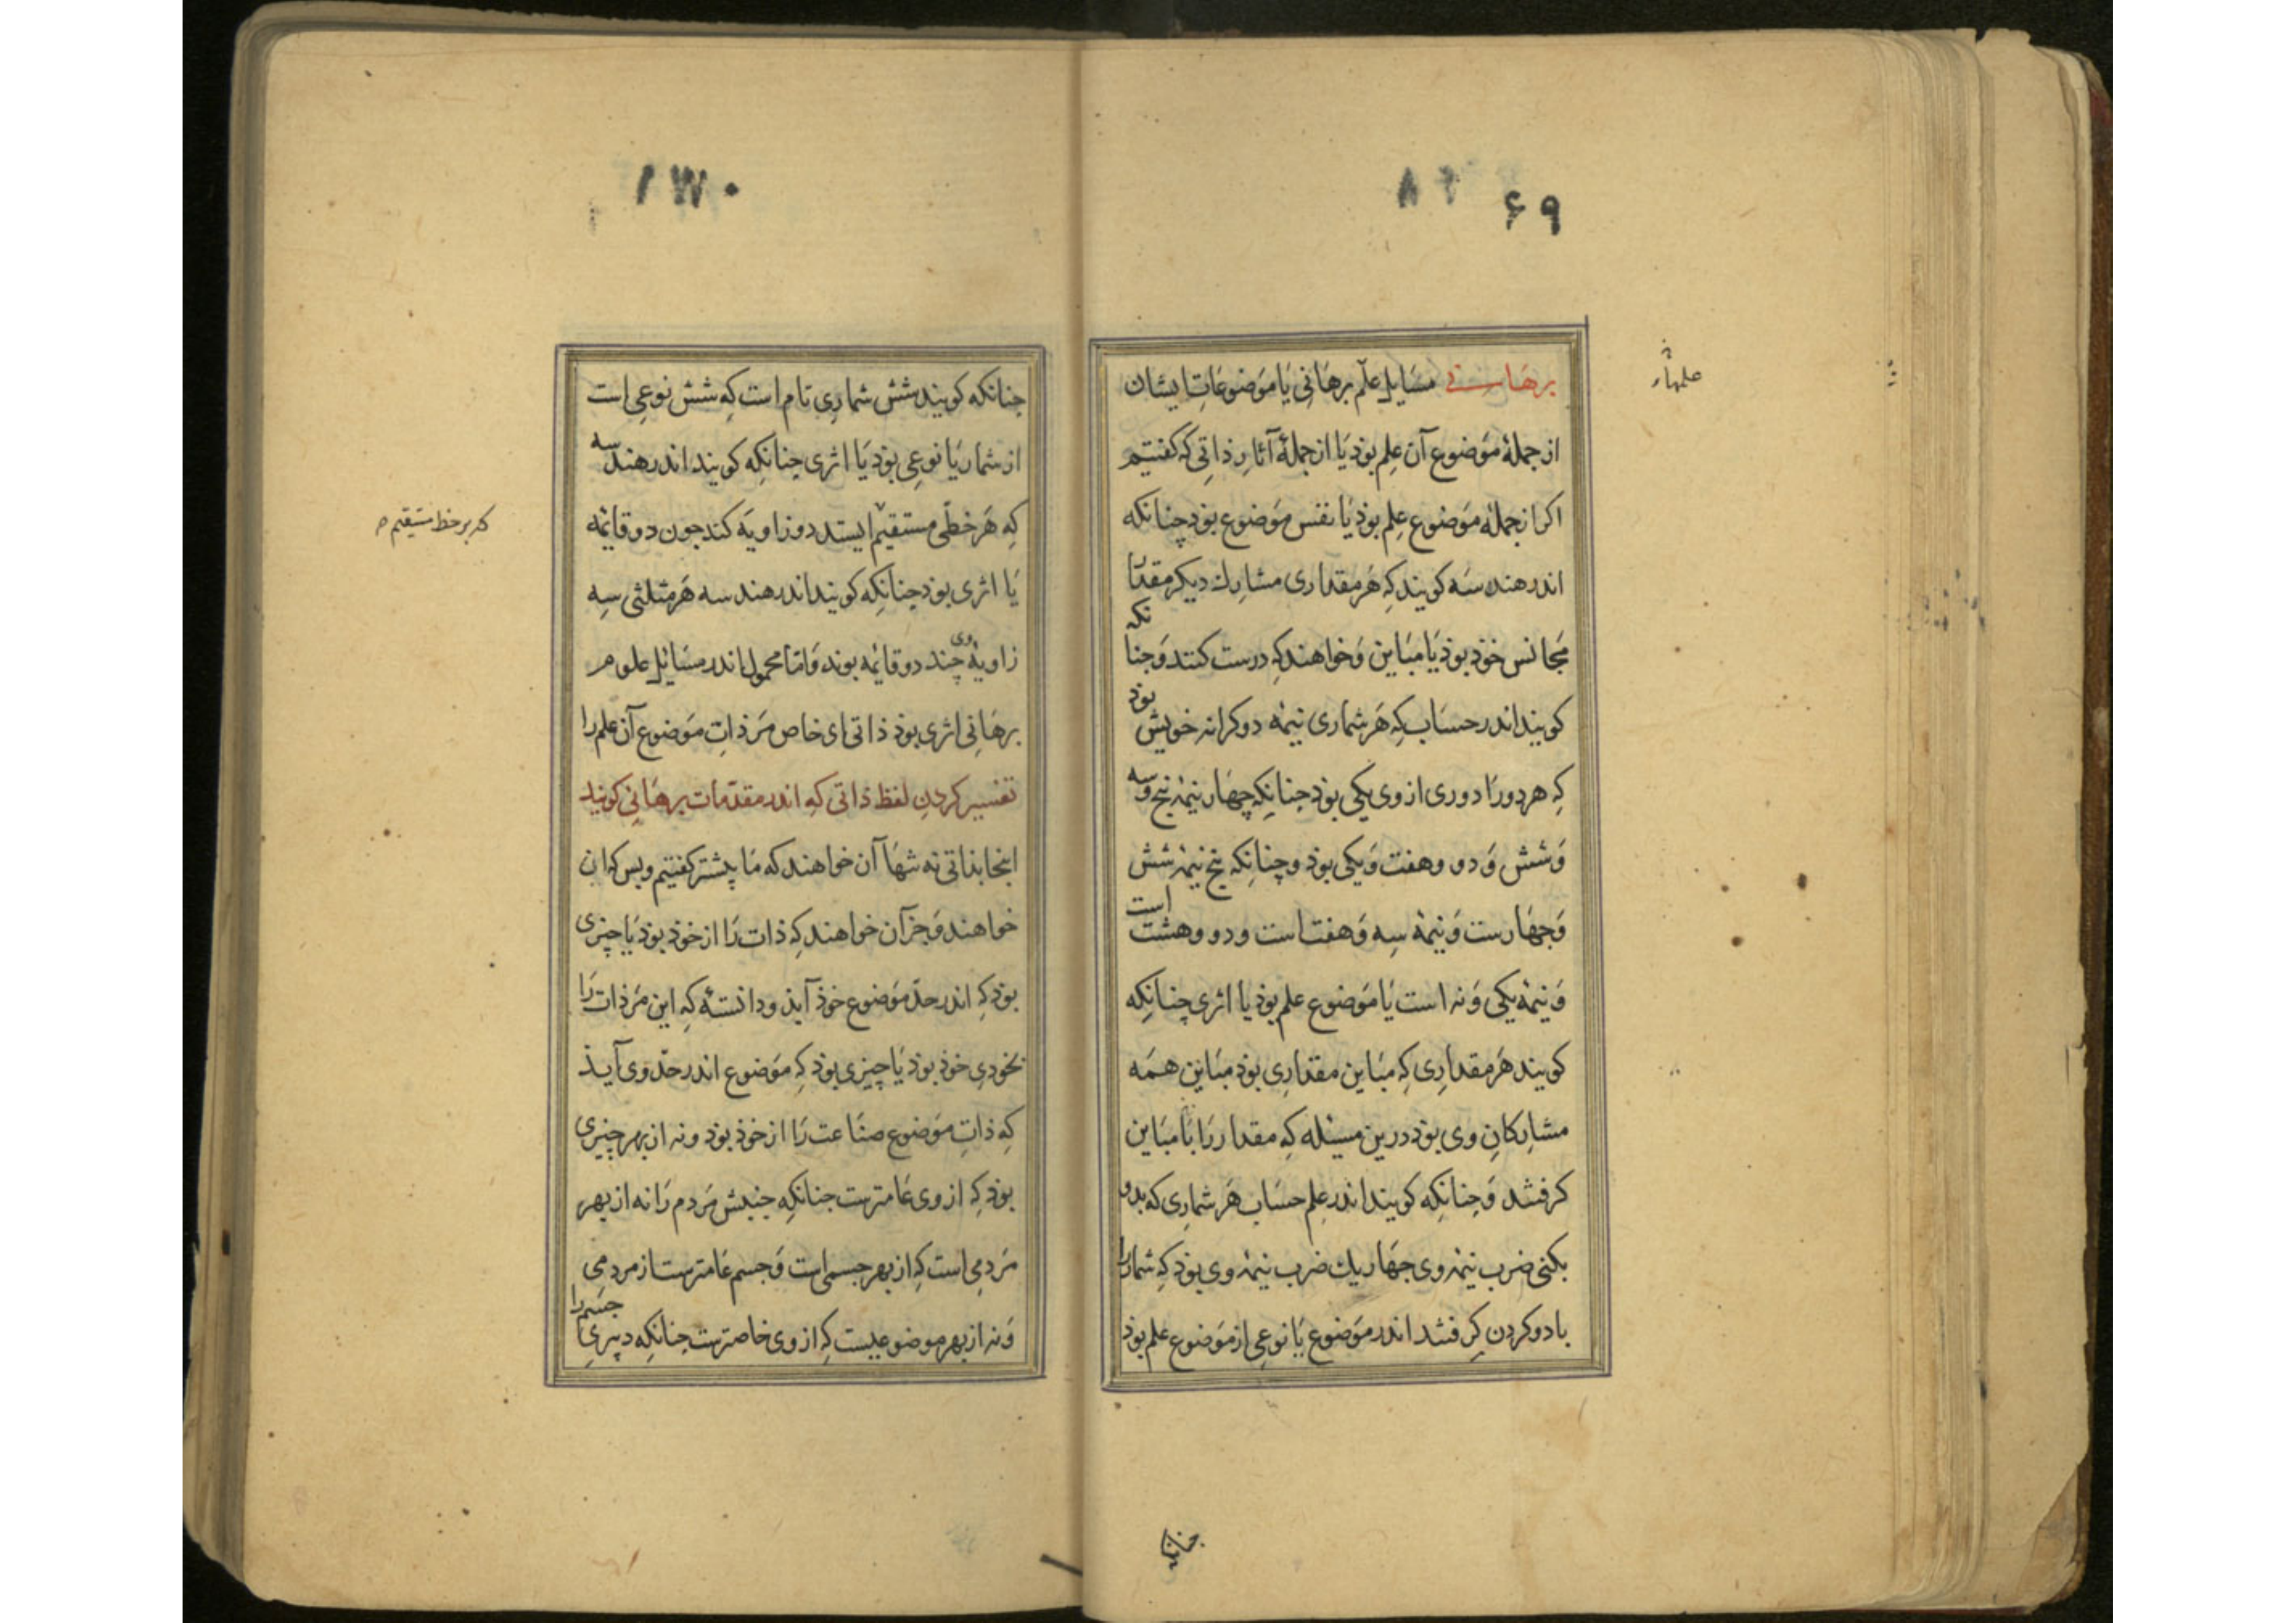 ۶۹
برهانی مسایل علم برهانی یا موضوعات ایشان
از جملهٔ موضوع آن علم بوذ یا از جملهٔ آثار ذاتی که کفتیم
اکر از جملهٔ موضوع علم بوذ یا نفس موضوع بوذ چنانکه
اندر هندسه کویند که هر مقداری مشارک دیکر مقدار
مجانس خوذ بوذ یا مباین و خواهند که درست کنند و جنانکه
کویند اندر حساب که هر شماری نیمهٔ دو کرانه خویش بوذ
که هر دو را دوری از وی یکی بوذ جنانکه چهار نیمهٔ پنج و سه
و شش و دو و هفت و یکی بوذ و چنانکه پنج نیمهٔ شش
و جهارست و نیمهٔ سه و هفت است و دو و هشت است
و نیمهٔ یکی و نه است یا موضوع علم بوذ یا اثری چنانکه
کویند هر مقداری که مباین مقداری بوذ مباین همه
مشارکان وی بوذ درین مسئله که مقدار را با مباین
کرفتند و جنانکه کویند اندر علم حساب هر شماری که بدو
بکنی ضرب نیمهٔ وی جهار یک ضرب نیمهٔ وی بوذ که شمار را
با دو کردن کرفتند اندر موضوع یا نوعی از موضوع علم بوذ
جنانکه
۱۳۰
جنانکه کویند شش شماری تام است که شش نوعی است
از شمار یا نوعی بوذ یا اثری جنانکه کویند اندر هندسه
که هر خطی مستقیم ایستد دو زاویه کند جون دو قائمه
که بر خط مستقیم
یا اثری بوذ چنانکه کویند اندر هندسه هر مثلثی سه
زاویهٔ وی چند دو قائمه بوند و اما محمول اندر مسائل علوم
برهانی اثری بوذ ذاتی ای خاص مر ذات موضوع آن علم را
تفسیر کردن لفظ ذاتی که اندر مقدمات برهانی کویند
اینجا بذاتی نه تنها آن خواهند که ما پیشتر کفتیم و بس که آن
خواهند و جز آن خواهند که ذات را از خوذ بوذ یا چیزی
بوذ که اندر حد موضوع خوذ آید و دانستهٔ که این مر ذات را
بخودی خوذ بوذ یا چیزی بوذ که موضوع اندر حد وی آیذ
که ذات موضوع صناعت را از خوذ بوذ و نه از بهر چیزی
بوذ که از وی عامترست جنانکه جنبش مردم را نه از بهر
مردمی است که از بهر جسمی است و جسم عامترست از مردمی
و نه از بهر موضوعیست که از وی خاصترست جنانکه دبیری جسم را